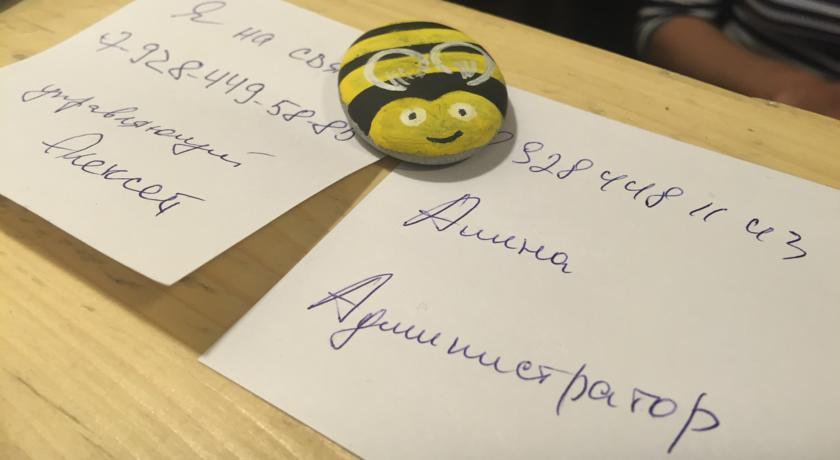 Я на
7-928-449-58-85
управляющий
Алексей
928 448 11 43
Алина
Администратор